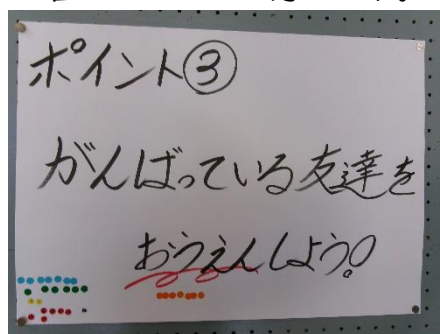 ポイント③
がんばっている友達を
おうえんしよう!